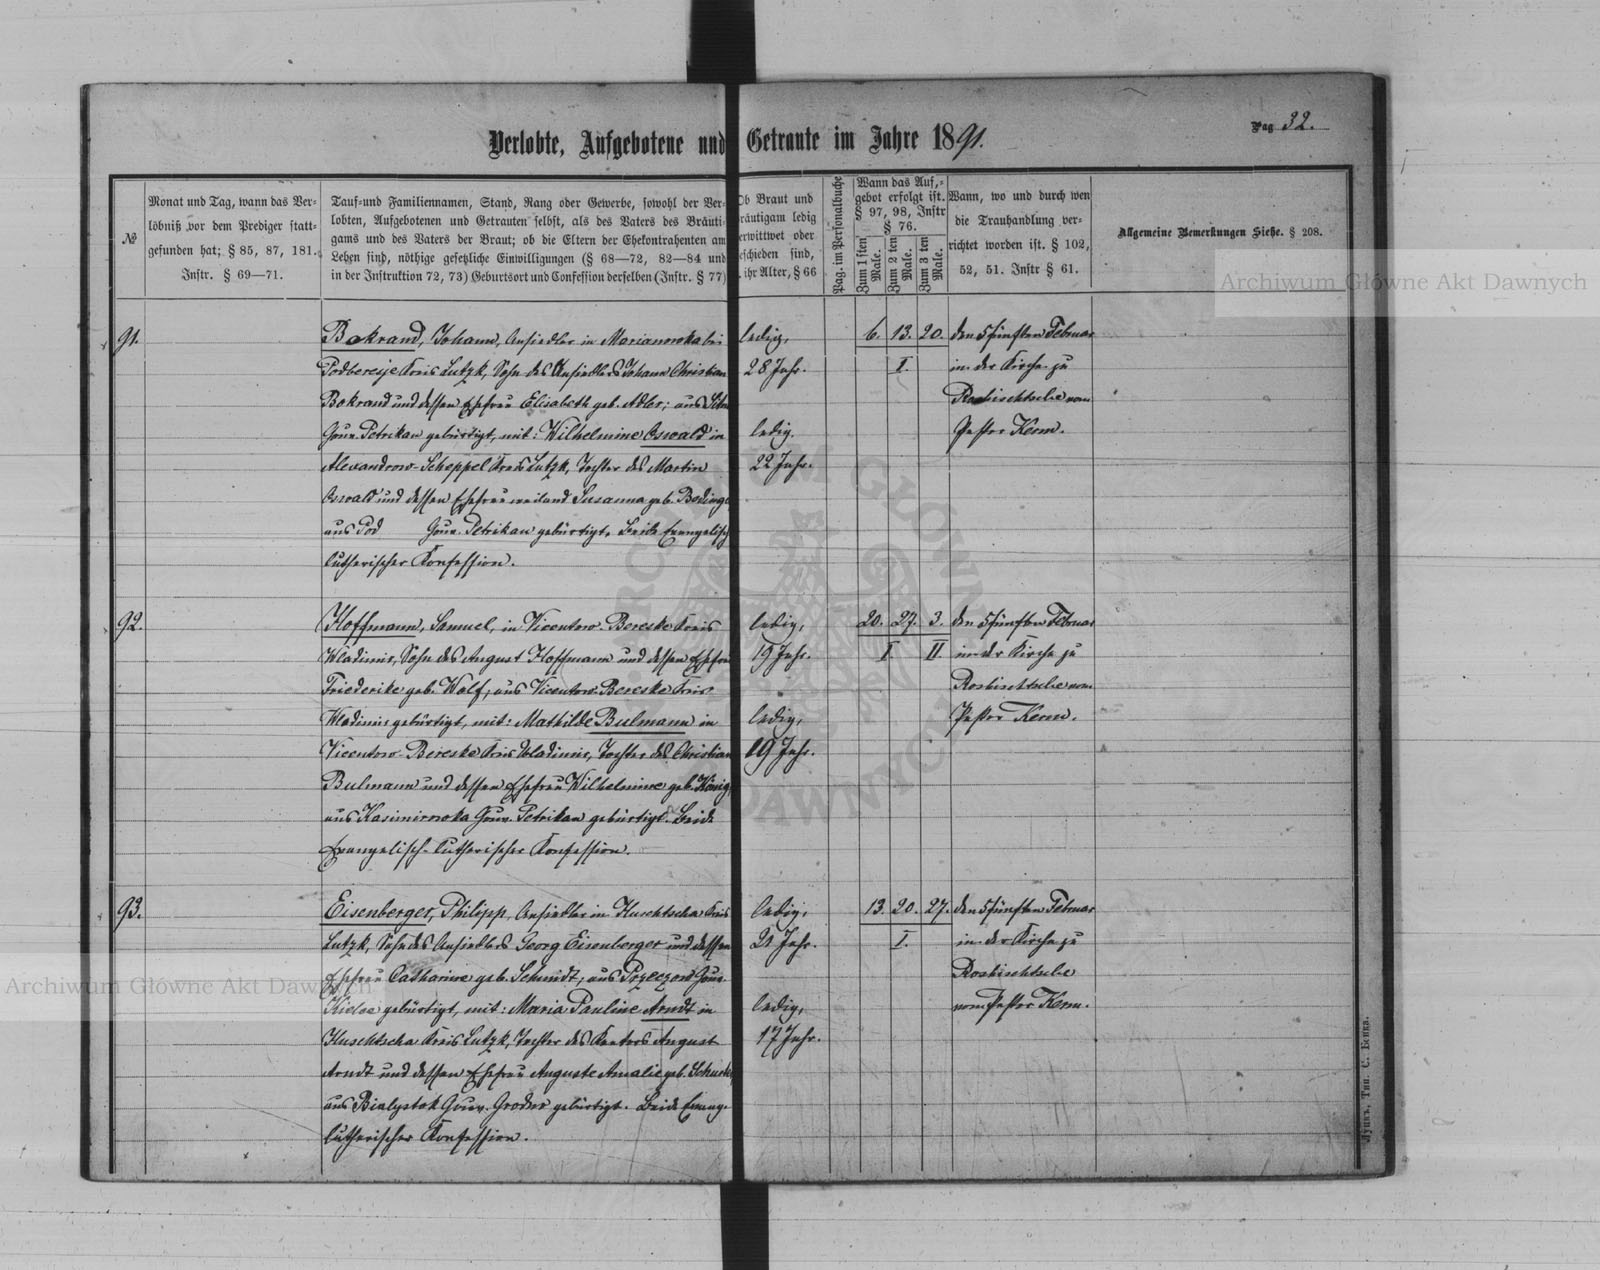 Pag 32.
Verlobte, Aufgebotene und Getraute im Jahre 1891.
№
Monat und Tag, wann das Ver-
löbniß vor dem Prediger statt-
gefunden hat; § 85, 87, 181.
Instr. § 69—71.
Tauf-und Familiennamen, Stand, Rang oder Gewerbe, sowohl der Ver-
lobten, Aufgebotenen und Getrauten selbst, als des Vaters des Bräuti-
gams und des Vaters der Braut; ob die Eltern der Ehekontrahenten am
Leben sind, nöthige gesetzliche Einwilligungen (§ 68—72, 82—84 und
in der Instruktion 72, 73) Geburtsort und Confession derselben (Instr. § 77)
Ob Braut und
räutigam ledig
erwittwet oder
eschieden sind,
ihr Alter, § 66
Pag. im Personalbuche
Wann das Auf-
gebot erfolgt ist.
§ 97, 98, Instr
§ 76.
Zum 1 sten Male.
Zum 2 ten Male.
Zum 3 ten Male.
Wann, wo und durch wen
die Trauhandlung ver-
richtet worden ist. § 102,
52, 51. Instr § 61.
Allgemeine Bemerkungen Siehe. § 208.
Archiwum Główne Akt Dawnych
91.
Bokrand, Johann, Ansiedler in Marianowka bei
Podbereije Kreis Lutzk, Sohn des Ansiedlers Johann Christian
Bokrand und dessen Ehefrau Elisabeth geb. Adler; aus
Gouv. Petrikau gebürtigt, mit: Wilhelmine Oswald in
Alexandrow-Scheppel Kreis Lutzk, Tochter des Martin
Oswald und dessen Ehefrau weiland Susanna geb.
aus Gouv. Petrikau gebürtigt. Beide Evangelisch
lutherischer Konfession.
ledig,
28 Jahr.
ledig.
22 Jahr.
6. 13. 20.
I.
den 5 fünften Februar
in der Kirche zu
Roshischtsche vom
Pastor Kerm.
92.
Hoffmann, Samuel, in Vicentow-Bereske Kreis
Wladimir, Sohn des August Hoffmann und dessen Ehefrau
Friederike geb. Wolf, aus Vicentow-Bereske Kreis
Wladimir gebürtigt, mit: Mathilde Bulmann in
Vicentow-Bereske Kreis Wladimir, Tochter des Christian
Bulmann und dessen Ehefrau Wilhelmine geb. König,
aus Kasimirowka Gouv. Petrikau gebürtigt. Beide
Evangelisch-lutherischer Konfession.
ledig,
19 Jahr.
ledig,
19 Jahr.
20. 27. 3.
I. II.
den 5 fünften Februar
in der Kirche zu
Roshischtsche vom
Pastor Kerm.
93.
Eisenberger, Philipp, Ansiedler in Kuschtscha Kreis
Lutzk, Sohn des Ansiedlers Georg Eisenberger und dessen
Ehefrau Catharine geb. Schmidt; aus Gouv.
Kielce gebürtigt, mit: Maria Pauline Arndt in
Kuschtscha Kreis Lutzk, Tochter des Kantors August
Arndt und dessen Ehefrau Auguste Amalie geb.
aus Bialystok Gouv. Grodno gebürtigt. Beide Evang.
lutherischer Konfession.
ledig,
21 Jahr.
ledig,
17 Jahr.
13. 20. 27.
I.
den 5 fünften Februar
in der Kirche zu
Roshischtsche
vom Pastor Kerm.
Archiwum Główne Akt Dawnych
ARCHIWUM GŁÓWNE
AKT DAWNYCH
Луцкъ, Тип. С. Бейка.